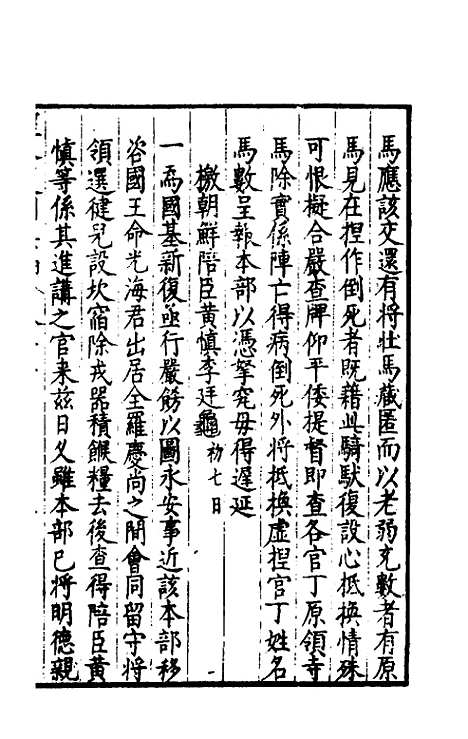 馬應該交還有將壯馬藏匿而以老弱充數者有原
馬見在捏作倒死者既藉此騎馱復設心抵換情殊
可恨擬合嚴查牌仰平倭提督即查各官丁原領寺
馬除實係陣亡得病倒死外將抵換虛捏官丁姓名
馬數呈報本部以憑拏究毋得遲延
檄朝鮮陪臣黃慎李廷龜初七日
一為國基新復亟行嚴飭以圖永安事近該本部移
咨國王命光海君出居全羅慶尚之間會同留守將
領選健兒設坎窞除戎器積餱糧去後查得陪臣黃
慎等係其進講之官来茲日久雖本部已將明德親